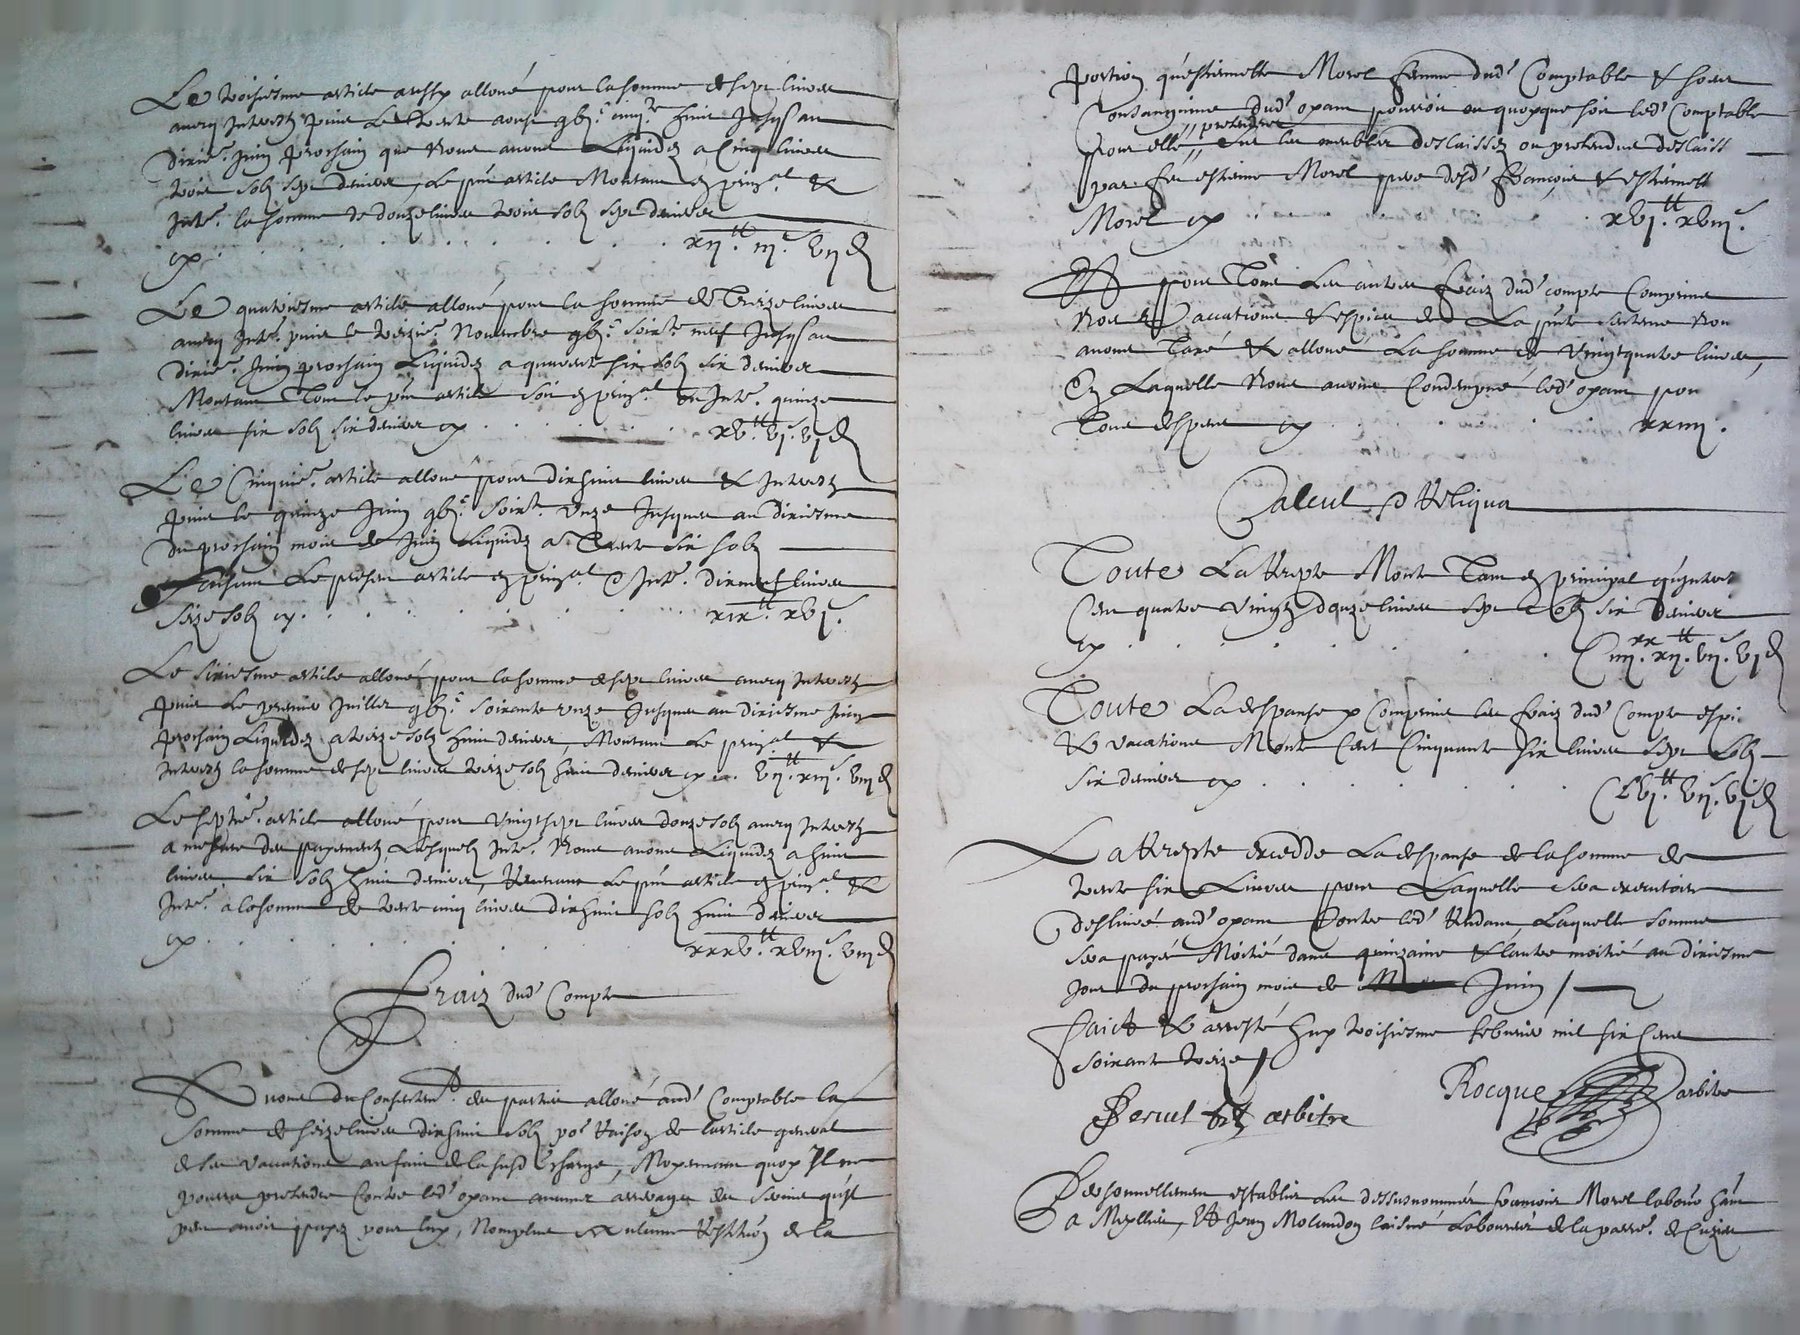 Le troisiesme article aussy alloué pour la somme de sept livres
avecq Interestz puis le trente aoust gbjc cinqte huit jusq au
dixie. Juin prochain que Nous avons Liquidez a Cinq livres
trois solz sept deniers, Le pnt article Montant en prinal &
Intt. la somme de douze livres trois solz sept deniers
cy . . . . . . xij.tt iij.s vij d
Le quatriesme article alloué pour la somme de Treize livres
avecq Intt. puis le treizie. Novembre gbjc soixte neuf Jusq au
dixie. Juin prochain Liquidez a quarente six solz six deniers
Montant Tout le pnt article soit en prinal ou Intt. quinze
livres six solz six deniers cy . . . . xv.tt vj.s vj d
Le Cinquie. article alloué pour dix huit livres & Interestz
puis le quinze Juin gbjc soixte. Unze Jusques au dixiesme
du prochain mois de Juin Liquidez a Trente six solz
Faisant Le present article en prinal & Intt. dix neuf livres
seize solz cy . . . . . . xix.tt xvj.s
Le sixiesme article alloué pour la somme de sept livres avecq Interestz
puis Le premier Juillet gbjc soixante unze Jusques au dixiesme Juin
prochain Liquidez a treize solz huit deniers, Montant Le prinal &
Interestz la somme de sept livres treize solz huit deniers cy . . vij.tt xiij.s viij d
Le septie. article alloué pour Vingt sept livres douze solz avecq Interestz
a mesure des payements, Lesquelz Intt. Nous avons Liquidez a huit
livres six solz huit deniers, Revenant Le pnt article en prinal &
Intt. a la somme de trente cinq livres dix huit solz huit deniers
cy . . . . . . xxxv.tt xviij.s viij d
Fraiz dud' Compte
Avons du Consentemt. des parties alloué aud' Comptable la
somme de seize livres dix huit solz por Raison de l'article general
de ses vacations au fait de la susd' charge, Moyennant quoy Il ne
pourra pretendre Contre led' oyant aucuns arrerages des Sciens qu'il
peut avoir payez pour luy, Nomplus aulcune Restition de la
portion qu'estiennette Morel femme dud' Comptable & soeur
Consanguine dud' oyant pourroit ou quoyque soit led' Comptable
pour elle, pretendre sur les meubles deslaissez ou pretendus deslaissé
par feu estienne Morel pere desd' François & estiennette
Morel cy . . . . xvj.tt xviij.s
Et pour Tous Les autres fraiz dud' compte Comprins
Nos Vacations & espices de La pnte sentence Nous
avons Taxé & alloué La somme de Vingt quatre livres,
En Laquelle Nous avons Condempné led' oyant pour
Tous despens cy . . . . xxiiij.
Calcul & Reliqua
Toute La Recepte Monte Tant en principal qu'Interestz
Cent quatre Vingtz douze livres sept solz six deniers
cy . . . . . . C iiij.xx xij.tt vij.s vj d
Toute La despanse y Comprins les fraiz dud' Compte espi.
& vacations Monte Cent Cinquante six livres sept solz
six deniers cy . . . . . C Lvj.tt vij.s vj d
La Recepte excedde La despanse de la somme de
trente six Livres pour Laquelle sera executoire
deslivré aud' oyant Contre led' Rendant, Laquelle somme
sera payé Moitié dans quinzaine & l'autre moitié au dixiesme
Jour du prochain mois de Juin /
Faict & arresté huy troisiesme febvrier mil six Cent
soixante treize /
Rocque arbitre
arbitre
Personnellement establis Les dessusnommez françois Morel
a Meyllier, Et Jean Molendon laisné Laboureur de la parre. de Cuzier